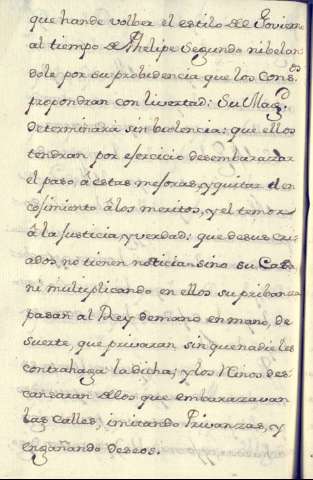 que hande volber el estilo del Govierno
al tiempo de Phelipe Segundo nibelan
dole por su probidencia que los Cons.os
propondran con livertad: Su Mag.d
determinará sin biolencia: que ellos
tendran por ejercicio desembarazar
el paso â estas mejoras, y quitar el en
cojimiento â los meritos, y el temor
â la Justicia, y verdad: que desus cri
ados no tienen noticia sino su Casa,
ni multiplicando en ellos su pribanza
pasan al Rey demano en mano, de
suerte, que privaran sin quenadie les
contrahaga la dicha; y los Niños des
cansaran de los que embarazavan
las Calles, imitando Privanzas, y
engañando deseos.